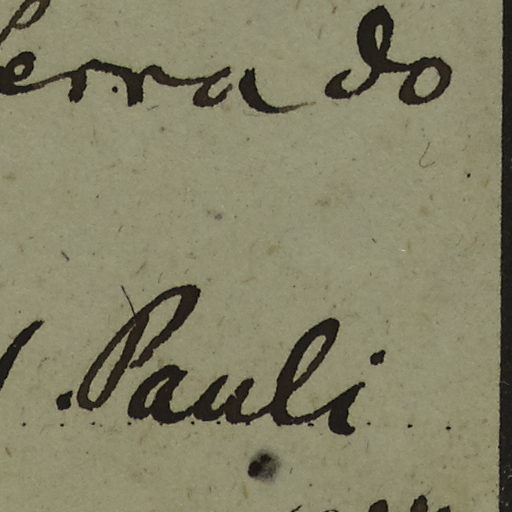 Serra do
. Pauli